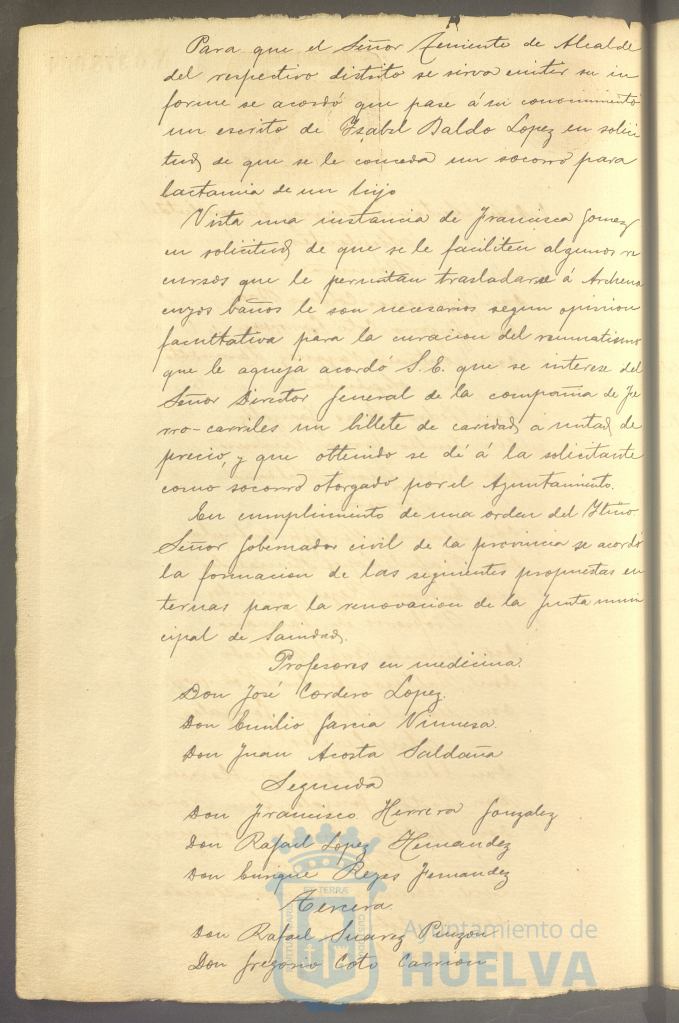 Para que el Señor Teniente de Alcalde
del respectivo distrito se sirva emitir su in
forme se acordó que pase á su conocimiento
un escrito de Ysabel Baldo Lopez en solici
tud de que se le conceda un socorro para
lactancia de un hijo
Vista una instancia de Francisca Gomez
en solicitud de que se le faciliten algunos re
cursos que le permitan trasladarse á Archena
cuyos baños le son necesarios segun opinion
facultativa para la curacion del reumatismo
que le aqueja acordó S.E. que se interese del
Señor Director General de la compañia de fe
rro-carriles un billete de caridad a mitad de
precio, y que obtenido se dé á la solicitante
como socorro otorgado por el Ayuntamiento.
En cumplimiento de una orden del Yltmo.
Señor Gobernador civil de la provincia se acordó
la formacion de las siguientes propuestas en
ternas para la renovacion de la Junta muni
cipal de Sanidad.
Profesores en medicina.
Don José Cordero Lopez.
Don Emilio Garcia Vinuesa.
Don Juan Acosta Saldaña
Segunda
Don Francisco Herrera Gonzalez
Don Rafael Lopez Hernandez
Don Enrique Reyes Fernandez
Tercera
Don Rafael Suarez Pinzon
Don Gregorio Coto Carrion
Ayuntamiento de
HUELVA